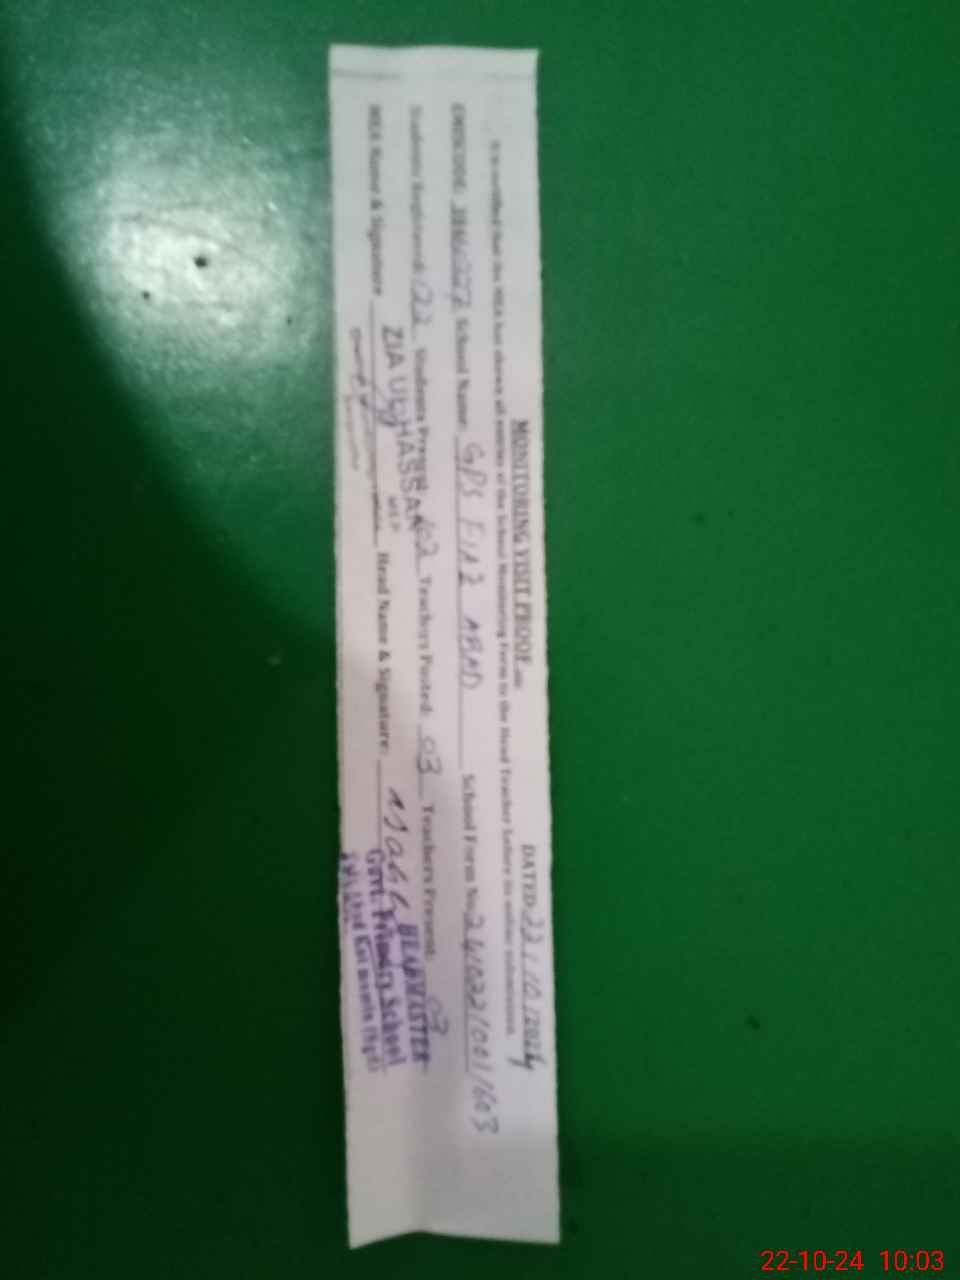 MONITORING VISIT PROOF
DATED: 22/10/2024
It is certified that the MEA has shown all entries of the School Monitoring Form to the Head Teacher before its online submission
EMISCODE School Name: GPS School Form No: 241022/001/603
Students Registered: 122 Students Present 102 Teachers Posted: 03 Teachers Present: 03
MEA Name & Signature Head Name & Signature:
ZIA UL HASSAN
HEADMASTER
Govt. Primary School
22-10-24 10:03